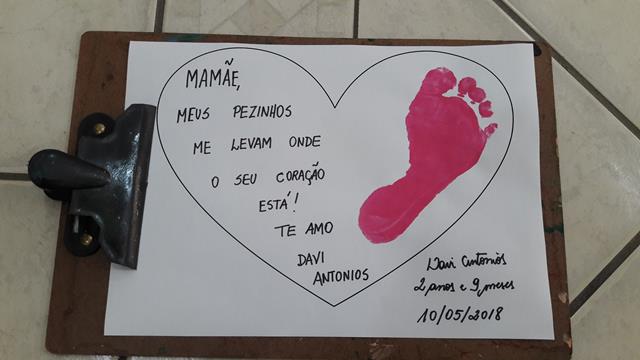 MAMÃE,
MEUS PEZINHOS
ME LEVAM ONDE
O SEU CORAÇÃO
ESTÁ!
TE AMO
DAVI
ANTONIOS
Davi Antonios
2 anos e 9 meses
10/05/2018